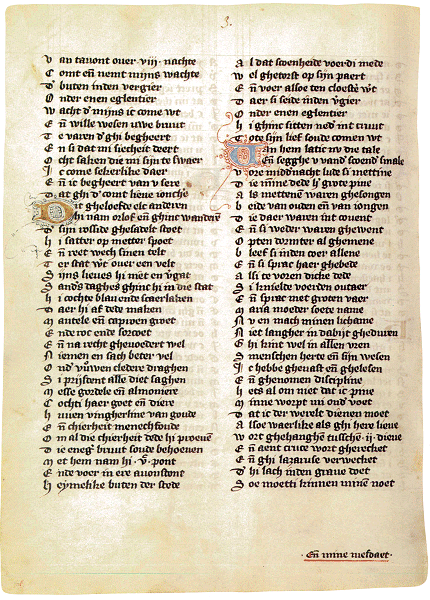 3.
Van tavont ouer .viij. nachte
Comt en̄ nemt mijns wachte
D' buten inden vergier
Onder enen eglentier
Wacht d' mijns ic come vvt
En̄ wille wesen uwe bruut
Te varen d' ghi begheert
En si dat mi siecheit deert
Ocht saken die mi sijn te swaer
Ic come sekerlike daer
En̄ ic begheert van v sere
Dat ghi d' comt lieue ionchere
Dit gheloefde elc anderen
Hi nam orlof en̄ ghinc wanderē
D' sijn rosside ghesadelt stoet
Hi satter op metter spoet
En̄ reet wech sinen telt
Ter stat w't ouer een velt
Sijns lieues hi niet en v'gat
Sand's daghes ghinc hi in die stat
Hi cochte blau ende scaerlaken
Daer hi af dede maken
Mantele en̄ caproen groet
Ende roc ende sorcoet
En̄ na recht gheuoedert wel
Niemen en sach beter vel
Ond' vrouwen cledere draghen
Si prijsdent alle diet saghen
Messe gordele en̄ almoniere
Cochti haer goet en̄ diere
Huuen vingherline van goude
En̄ chierheit menechfoude
Om al die chierheit dede hi proeuen
Die eneg' bruut soude behoeuen
Met hem nam hi .vc. pont
Ende voer in ere auonstont
Heymelike buten der stede
Al dat scoenheide voerdi mede
Wel ghetorst op sijn paert
En̄ voer alsoe ten cloest' w't
Daer si seide inden v'gier
Onder enen eglentier
Hi ghinc sitten ned' int cruut
Tote sijn lief soude comen vvt
Van hem latic nv die tale
En̄ segghe v vand' scoend' smale
Vore middnacht lude si mettine
Die minne dede h' grote pine
Als mettenen waren ghesongen
Beide van ouden en̄ van iongen
Die daer waren int couent
En̄ si weder waren ghewent
Opten dormter al ghemene
Bleef si inden coer allene
En̄ si sprac haer ghebede
Alsi te voren dicke dede
Si knielde voerden outaer
En̄ sprac met groten vaer
Maria moeder soete name
Nv en mach minen lichame
Niet langher in dabijt gheduren
Ghi kint wel in allen vren
Smenschen herte en̄ sijn wesen
Ic hebbe gheuast en̄ ghelesen
En̄ ghenomen discipline
Hets al om niet dat ic pine
Minne worpt mi ond' voet
Dat ic der werelt dienen moet
Alsoe waerlike als ghi here lieue
Wort ghehanghen tusschen .ij. dieue
En̄ aent cruce wort gherecket
En̄ ghi lazaruse verwecket
D' hi lach inden graue doet
Soe moetti kinnen minen noet
. En̄ mine mesdaet .